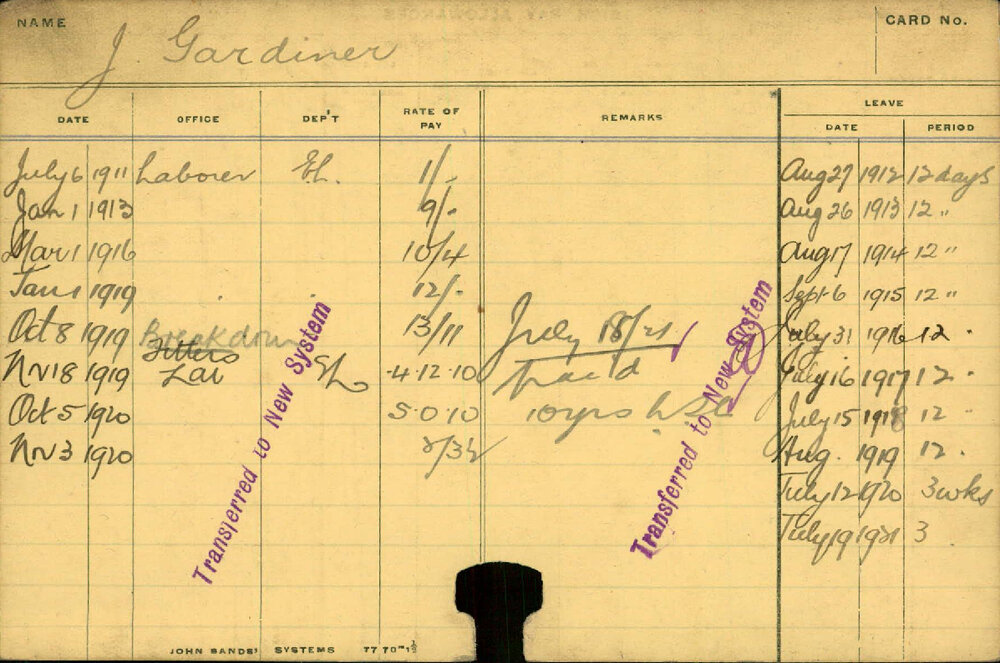 NAME
CARD No.
J Gardiner
DATE OFFICE DEP'T RATE OF PAY REMARKS LEAVE
DATE PERIOD
July 6 1911 Laborer EL. 1/- Aug 27 1912 12 days
Jan 1 1913 9/- Aug 26 1913 12 "
Mar 1 1916 10/4 Aug 17 1914 12 "
Jan 1 1919 12/- Sept 6 1915 12 "
Oct 8 1919 Breakdown 13/11 July 18/21 July 31 1916 12 "
Fitters
Nov 18 1919 4.12.10 July 16 1917 12 "
Oct 5 1920 5.0.10 10 yrs July 15 1918 12 "
Nov 3 1920 Aug. 1919 12 "
July 12 1920 3 wks
July 19 1921 3
Transferred to New System
Transferred to New System
JOHN SANDS' SYSTEMS 77 70